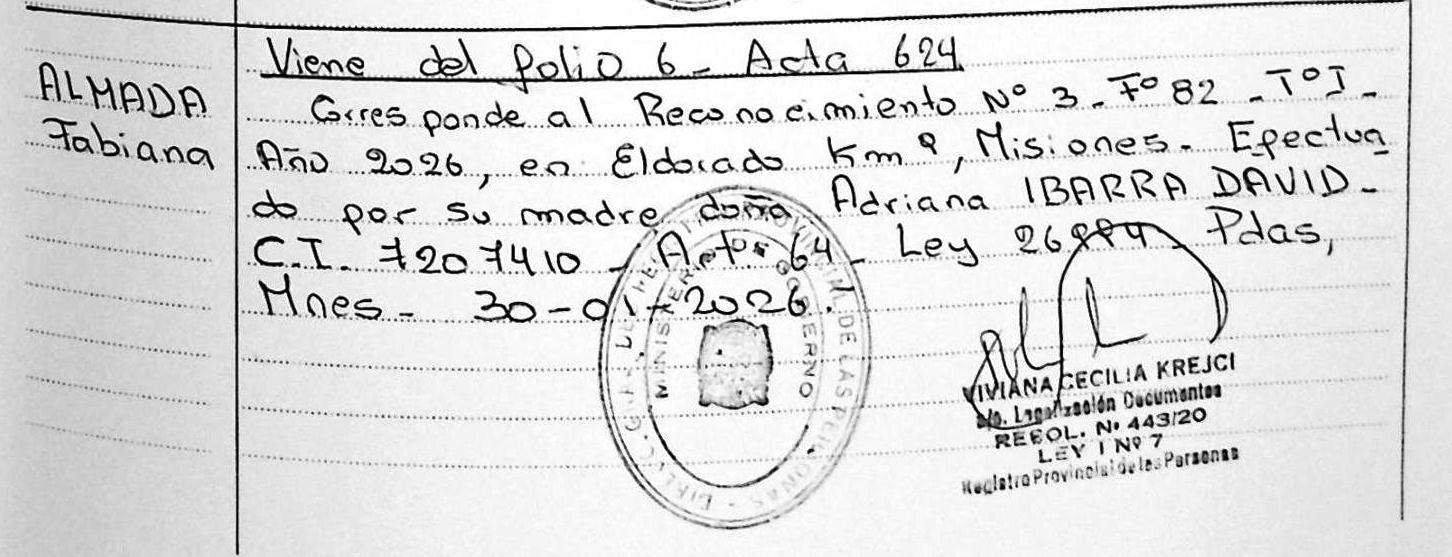 ALMADA
Fabiana
Viene del folio 6 - Acta 624
Corresponde al Reconocimiento Nº 3 - Fº 82 - Tº I -
Año 2026, en Eldorado Km 9, Misiones - Efectua
do por su madre doña Adriana IBARRA DAVID -
C.I. 7207410 - Art: 64 - Ley 26994 Pdas,
Mnes - 30-01-2026.
MINISTERIO GOBIERNO
PROVINCIAL DE LAS PERSONAS
VIVIANA CECILIA KREJCI
Legalización Documentos
RESOL. Nº 443/20
LEY I Nº 7
Registro Provincial de las Personas